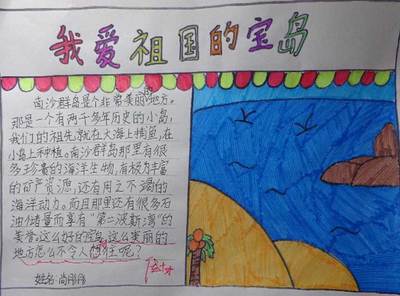 我爱祖国的宝岛
南沙群岛是个非常美丽的地方。
那是一个有两千多年历史的小岛，
我们的祖先就在大海上捕鱼，在
小岛上种植。南沙群岛那里有很
多珍贵的海洋生物，有极为丰富
的矿产资源，还有用之不竭的
海洋动力。而且那里还有很多石
油储量而享有“第二波斯湾”的
美誉。这么好的宝岛，这么美丽的
地方怎么不令人向往呢？
姓名：尚彤彤